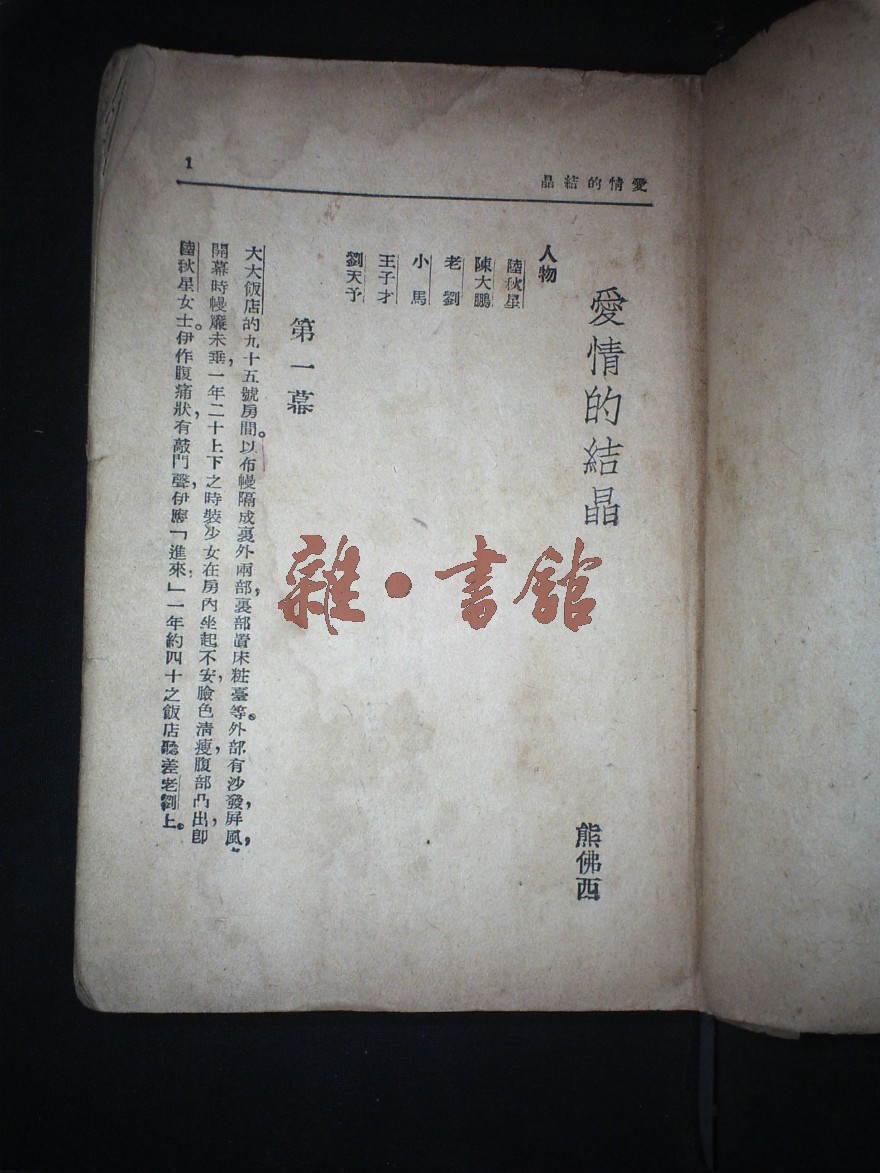 愛情的結晶
1
愛情的結晶
熊佛西
人物
陸秋星
陳大鵬
老劉
小馬
王子才
劉天予
第一幕
大大飯店的九十五號房間。以布幔隔成裏外兩部，裏部置床粧臺等。外部有沙發，屏風，
開幕時幔簾未垂，一年二十上下之時裝少女在房內坐起不安，臉色清瘦，腹部凸出，卽
陸秋星女士。伊作腹痛狀，有敲門聲，伊應「進來，」一年約四十之飯店聽差老劉上。
雜•書舘